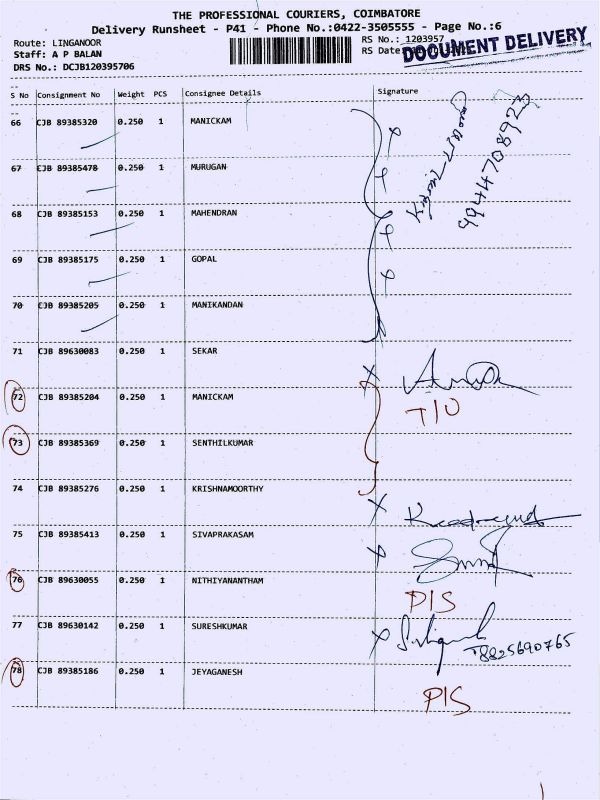 THE PROFESSIONAL COURIERS, COIMBATORE
Delivery Runsheet - P41 - Phone No.:0422-3505555 - Page No.:6
Route: LINGANOOR
RS No.: 1203957
Staff: A P BALAN
RS Date:
DOCUMENT DELIVERY
DRS No.: DCJB120395706
S No Consignment No Weight PCS Consignee Details Signature
66 CJB 89385320 0.250 1 MANICKAM
67 CJB 89385478 0.250 1 MURUGAN
9944708923
68 CJB 89385153 0.250 1 MAHENDRAN
69 CJB 89385175 0.250 1 GOPAL
70 CJB 89385205 0.250 1 MANIKANDAN
71 CJB 89630083 0.250 1 SEKAR
72 CJB 89385204 0.250 1 MANICKAM
T/O
73 CJB 89385369 0.250 1 SENTHILKUMAR
74 CJB 89385276 0.250 1 KRISHNAMOORTHY
75 CJB 89385413 0.250 1 SIVAPRAKASAM
76 CJB 89630055 0.250 1 NITHIYANANTHAM
PIS
77 CJB 89630142 0.250 1 SURESHKUMAR
8825690765
78 CJB 89385186 0.250 1 JEYAGANESH
PIS